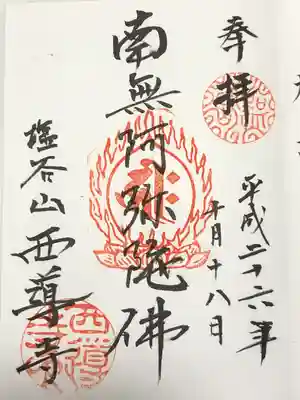 奉拝
平成二十六年
月十八日
南無阿弥陀佛
塩谷山 西導寺